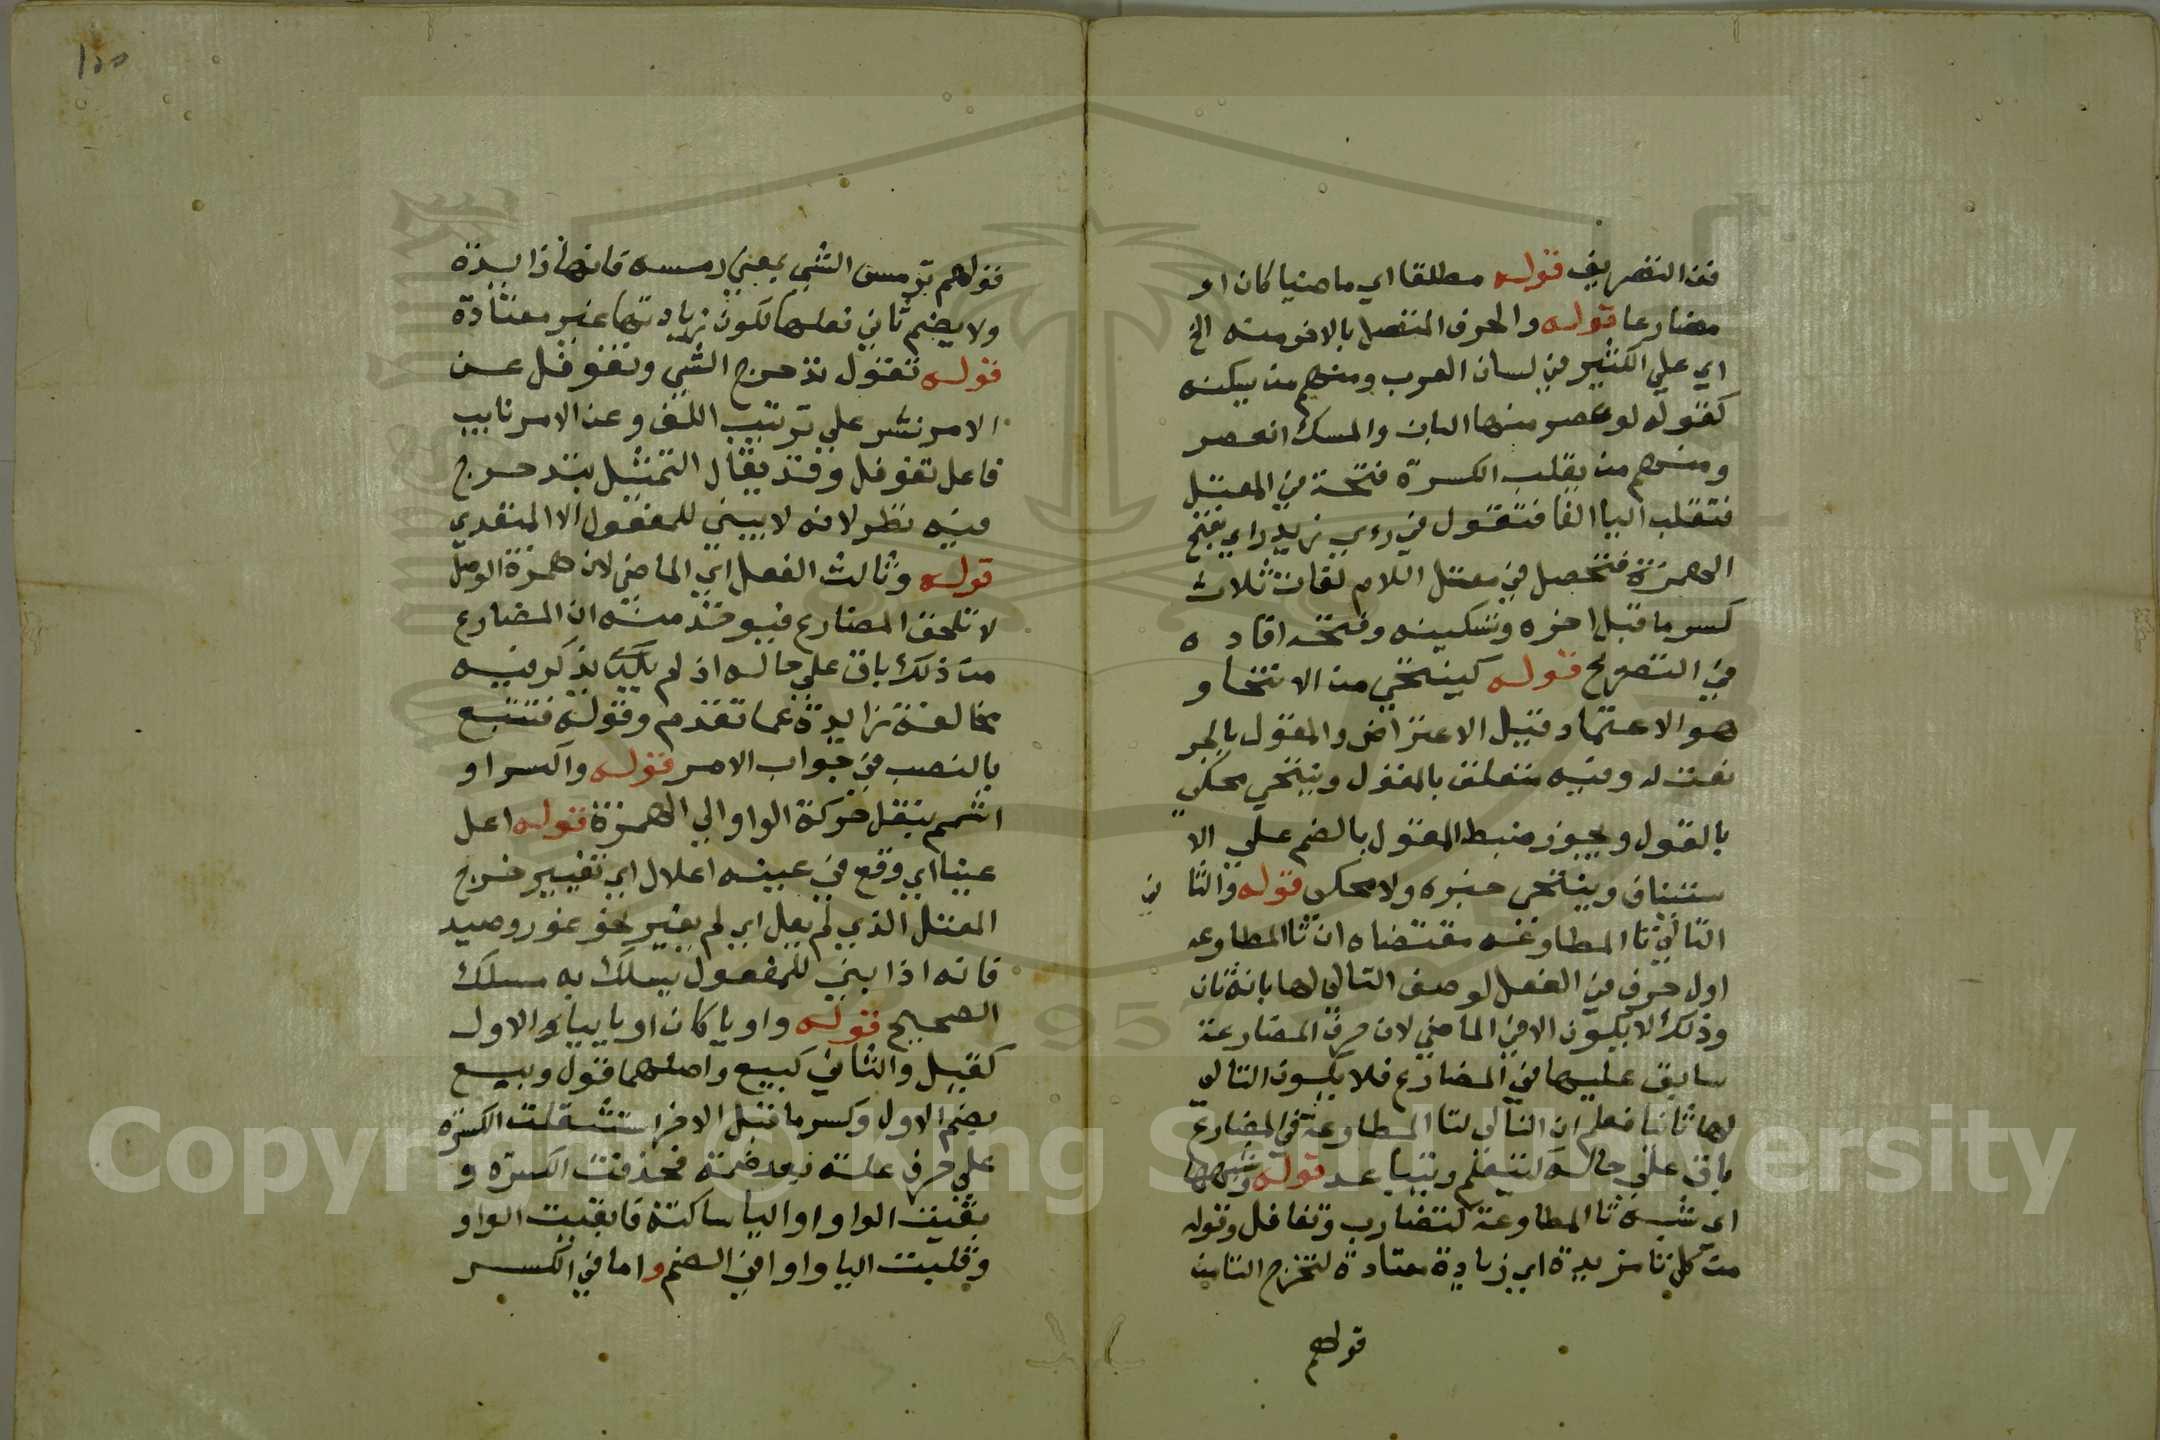 فن التصريف قوله مطلقا اي ماضيا كان او
مضارعا قوله والحرف المتصل بالاخر منه الخ
اي علي الكثير في لسان العرب ومنهم من يسكنه
كقوله لو عصر منها البان والمسك انعصر
ومنهم من يقلب الكسرة فتحة في المعتل
فتقلب اليا الفا فتقول في رءي زيد راي بفتح
الهمزة فتحصل في معتل اللام لغات ثلاث
كسر ما قبل اخره وتسكينه وفتحه افاده
في التصريح قوله كينتحي من الانتحا و
هو الاعتماد وقيل الاعتراض والمقول بالجر
نعت له وفيه متعلق بالمقول وينتحي محكي
بالقول ويجوز ضبط المقول بالضم علي الا
ستيناف وينتحي خبره ولا محكي قوله والثاني
التالي تا المطاوعه مقتضاه ان تا المطاوعه
اول حرف من الفعل لوصف التالي لها بانه ثان
وذلك لا يكون الا في الماضي لان حرف المضارعة
سابق عليها في المضارع فلا يكون التالي
لها ثانيا فعلم ان التالي لتا المطاوعة في المضارع
باق علي حاله كيتعلم ويتباعد قوله وشبهها
اي شبه تا المطاوعة كتضارب وتغافل وقوله
من كل تا مزيدة اي زيادة معتادة لتخرج التا من
قولهم
١٥٥
قولهم ترمس الشي بمعني رمسه فانها زايدة
ولا يضم ثاني فعلها لكون زيادتها غير معتادة
قوله تقول تدحرج الشي وتغوفل عن
الامر نشر علي ترتيب اللف وعن الامر نايب
فاعل تغوفل وقد يقال التمثيل بتدحرج
فيه نظر لانه لا يبني للمفعول الا المتعدي
قوله وثالث الفعل اي الماضي لان همزة الوصل
لا تلحق المضارع فيوخذ منه ان المضارع
من ذلك باق علي حاله اذ لم يذكر فيه
مخالفة زايدة عما تقدم وقوله فتتبع
بالنصب في جواب الامر قوله واكسر او
اشمم بنقل حركة الواو الي الهمزة قوله اعل
عينا اي وقع في عينه اعلال اي تغيير خرج
المعتل الذي لم يعل اي لم يغير نحو عور وصيد
فانه اذا بني للمفعول يسلك به مسلك
الصحيح قوله واويا كان او ياييا فالاول
كقيل والثاني كبيع واصلهما قول وبيع
بضم الاول وكسر ما قبل الاخر استثقلت الكسرة
علي حرف علة بعد ضمة فحذفت الكسرة و
بقيت الواو او اليا ساكنة فابقيت الواو
وقلبت اليا واوا في الضم واما في الكسر